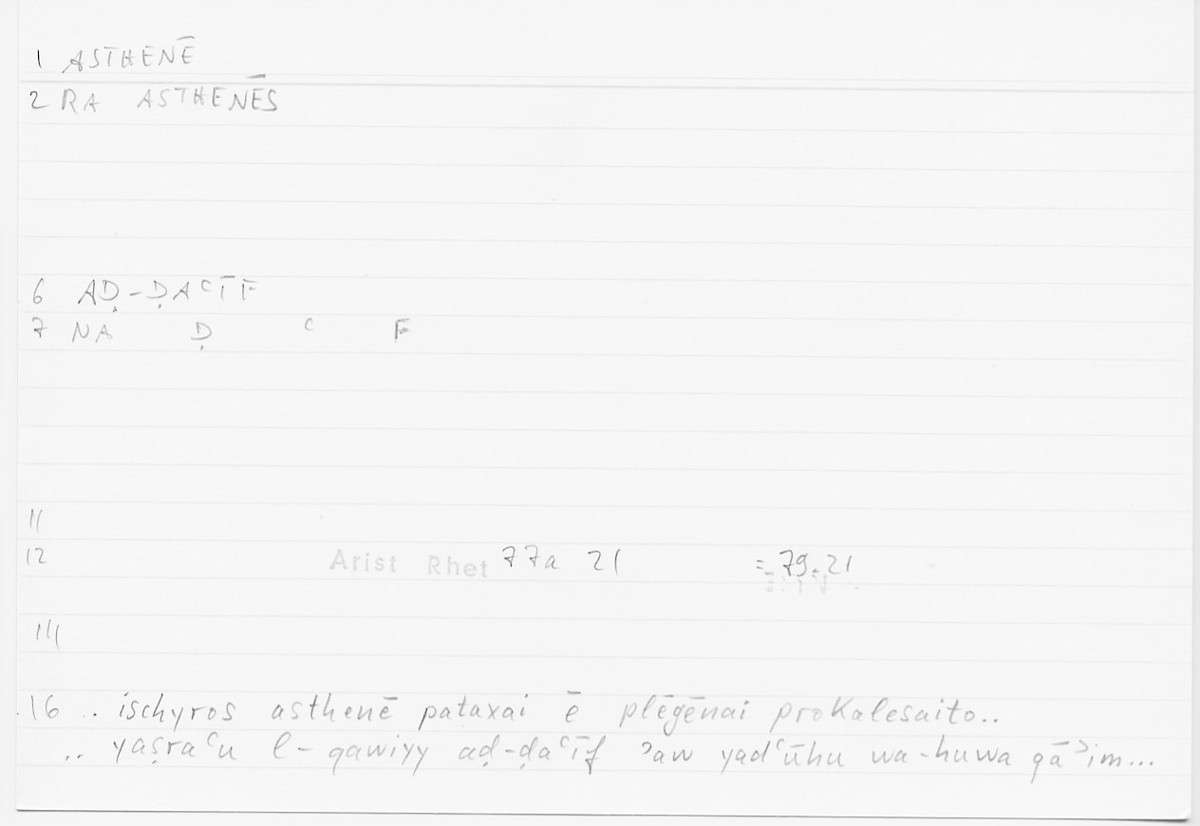 1 ASTHENĒ
2 RA ASTHENĒS
6 AḌ-ḌAʿĪF
7 NA Ḍ ʿ F
11
12 Arist Rhet 77a 21 = 79.21
14
16 .. ischyros asthenē pataxai ē plēgēnai prokalesaito..
.. yaṣraʿu l-qawiyy aḍ-ḍaʿīf ʾaw yadʿūhu wa-huwa qāʾim...